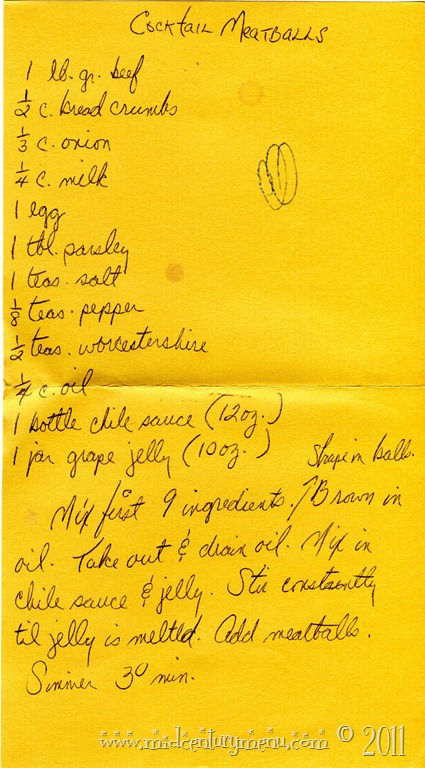 Cocktail Meatballs
1 lb. gr. beef
1/2 c. bread crumbs
1/3 c. onion
1/4 c. milk
1 egg
1 tbl. parsley
1 teas. salt
1/8 teas. pepper
1/2 teas. worcestershire
1/4 c. oil
1 bottle chile sauce (12oz.)
1 jar grape jelly (10oz.)
Shape in balls.
Mix first 9 ingredients. ↑Brown in
oil. Take out & drain oil. Mix in
chile sauce & jelly. Stir constantly
til jelly is melted. Add meatballs.
Simmer 30 min.
www.midcenturymenu.com © 2011